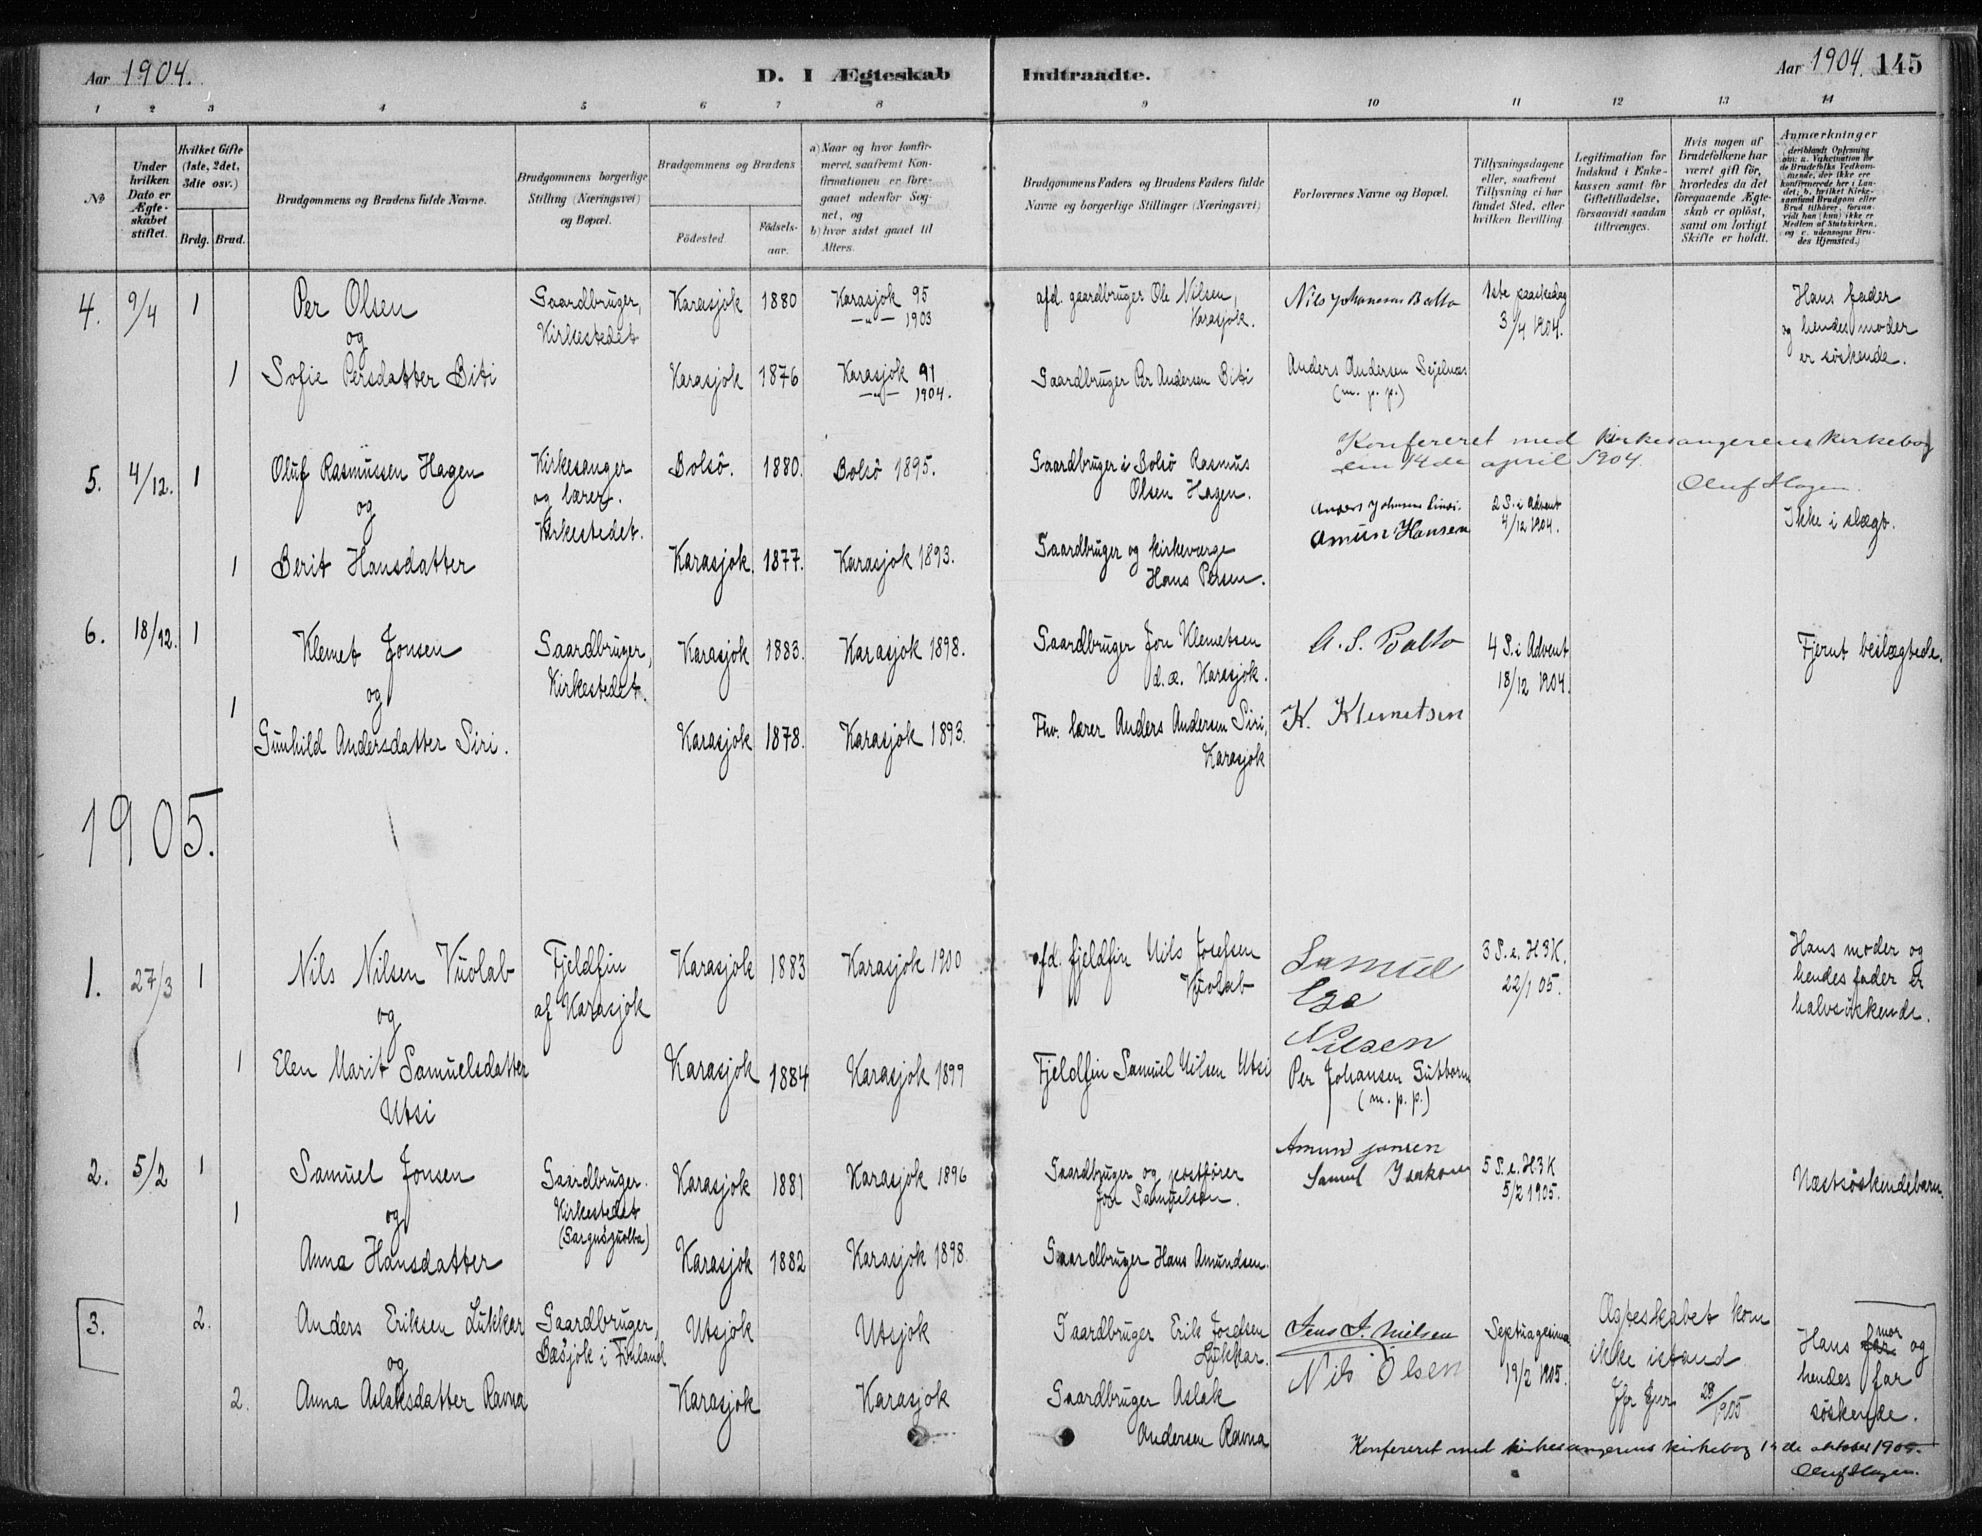 Aar 1904.
D. I Ægteskab Indtraadte.
Aar 1904. 145
1 2 3 4 5 6 7 8 9 10 11 12 13 14
No
Under hvilken Dato er Ægteskabet stiftet.
Hvilket Gifte (1ste, 2det, 3die osv.)
Brdg. Brud.
Brudgommens og Brudens fulde Navne.
Brudgommens borgerlige Stilling (Næringsvei) og Bopæl.
Brudgommens og Brudens
Födested.
Födselsaar.
a) Naar og hvor konfirmeret, saafremt Konfirmationen er foregaaet udenfor Sognet, og
b) hvor sidst gaaet til Alters.
Brudgommens Faders og Brudens Faders fulde Navne og borgerlige Stillinger (Næringsvei)
Forlovernes Navne og Bopæl.
Tillysningsdagene eller, saafremt Tillysning ei har fundet Sted, efter hvilken Bevilling.
Legitimation for Indskud i Enkekassen samt for Giftetilladelse, forsaavidt saadan tiltrænges.
Hvis nogen af Brudefolkene har været gift før, hvorledes da det foregaaende Ægteskab er oplöst, samt om lovligt Skifte er holdt.
Anmærkninger (deriblandt Oplysning om: a. Vaksination for de Brudefolks Vedkommende, der ikke ere konfirmerede her i Landet; b. hvilket Kirkesamfund Brudgom eller Brud tilhörer, forsaavidt han (hun) ikke er Medlem af Statskirken, og c. udensogns Brudes Hjemsted.)
4. 9/4 1 Per Olsen Gaardbruger, Karasjok 1880 Karasjok 95 afd. gaardbruger Ole Nilsen, Nils Johansen Balto 1ste paaskedag Hans fader
og Kirkestedet —"— 1903 Karasjok. 3/4 1904. og hendes moder
1 Sofie Persdatter Biti Karasjok 1876 Karasjok 91 Gaardbruger Per Andersen Biti Anders Andersen er søskende.
—"— 1904. (m. p. p.)
Konfereret med kirkesangerens kirkebog
den 14de april 1904.
Oluf Hagen.
5. 4/12. 1 Oluf Rasmussen Hagen Kirkesanger Bolsö. 1880. Bolsö 1895. Gaardbruger i Bolsö Rasmus
og og lærer. Olsen Hagen. Anders Johnsen 2 S. i Advent Ikke i slægt.
Kirkestedet. Amun Hansen 4/12 1904.
1 Berit Hansdatter Karasjok. 1877. Karasjok 1893. Gaardbruger og kirkeværge
Hans Persen.
6. 18/12. 1 Klemet Jonsen Gaardbruger, Karasjok 1883. Karasjok 1898. Gaardbruger Jon Klemetsen A. S. Balto 4 S. i Advent Fjernt beslægtede.
og Kirkestedet. d. æ. Karasjok. 18/12 1904.
1 Gunhild Andersdatter Siri. Karasjok 1878. Karasjok 1893. Fhv. lærer Anders Andersen Siri, K. Klemetsen
Karasjok
1905.
1. 27/3 1 Nils Nilsen Vuolab Fjeldfin Karasjok 1883 Karasjok 1900 afd. fjeldfin Nils Josefsen Samuel 3 S. e. H3K. Hans moder og
og af Karasjok Vuolab Nilsen 22/1 05. hendes fader er
halvsøskende.
1 Elen Marit Samuelsdatter Karasjok 1884 Karasjok 1899 Fjeldfin Samuel Nilsen Utsi Per Johansen Guttorm
Utsi (m. p. p.)
2. 5/2 1 Samuel Jonsen Gaardbruger. Karasjok 1881 Karasjok 1896 Gaardbruger og postfører Amund Jansen 5 S. e. H3K Næstsøskendebarn.
og Kirkestedet Jon Samuelsen. Samuel 5/2 1905.
1 Anna Hansdatter Karasjok 1882 Karasjok 1898. Gaardbruger Hans Amundsen.
3. 2. Anders Eriksen Lukkar Gaardbruger, Utsjok Utsjok Gaardbruger Erik Josefsen Jens J. Nielsen Septuagesima Ægteskabet kom Hans far mor og
og Basjok i Finland Lukkar. Nils Olsen 19/2 1905. ikke istand. hendes far
2. Anna Aslaksdatter Ravna Karasjok Karasjok Gaardbruger Aslak 28/1905 søskende.
Andersen Ravna
Konfereret med kirkesangerens kirkebog 14de oktober 1905.
Oluf Hagen.